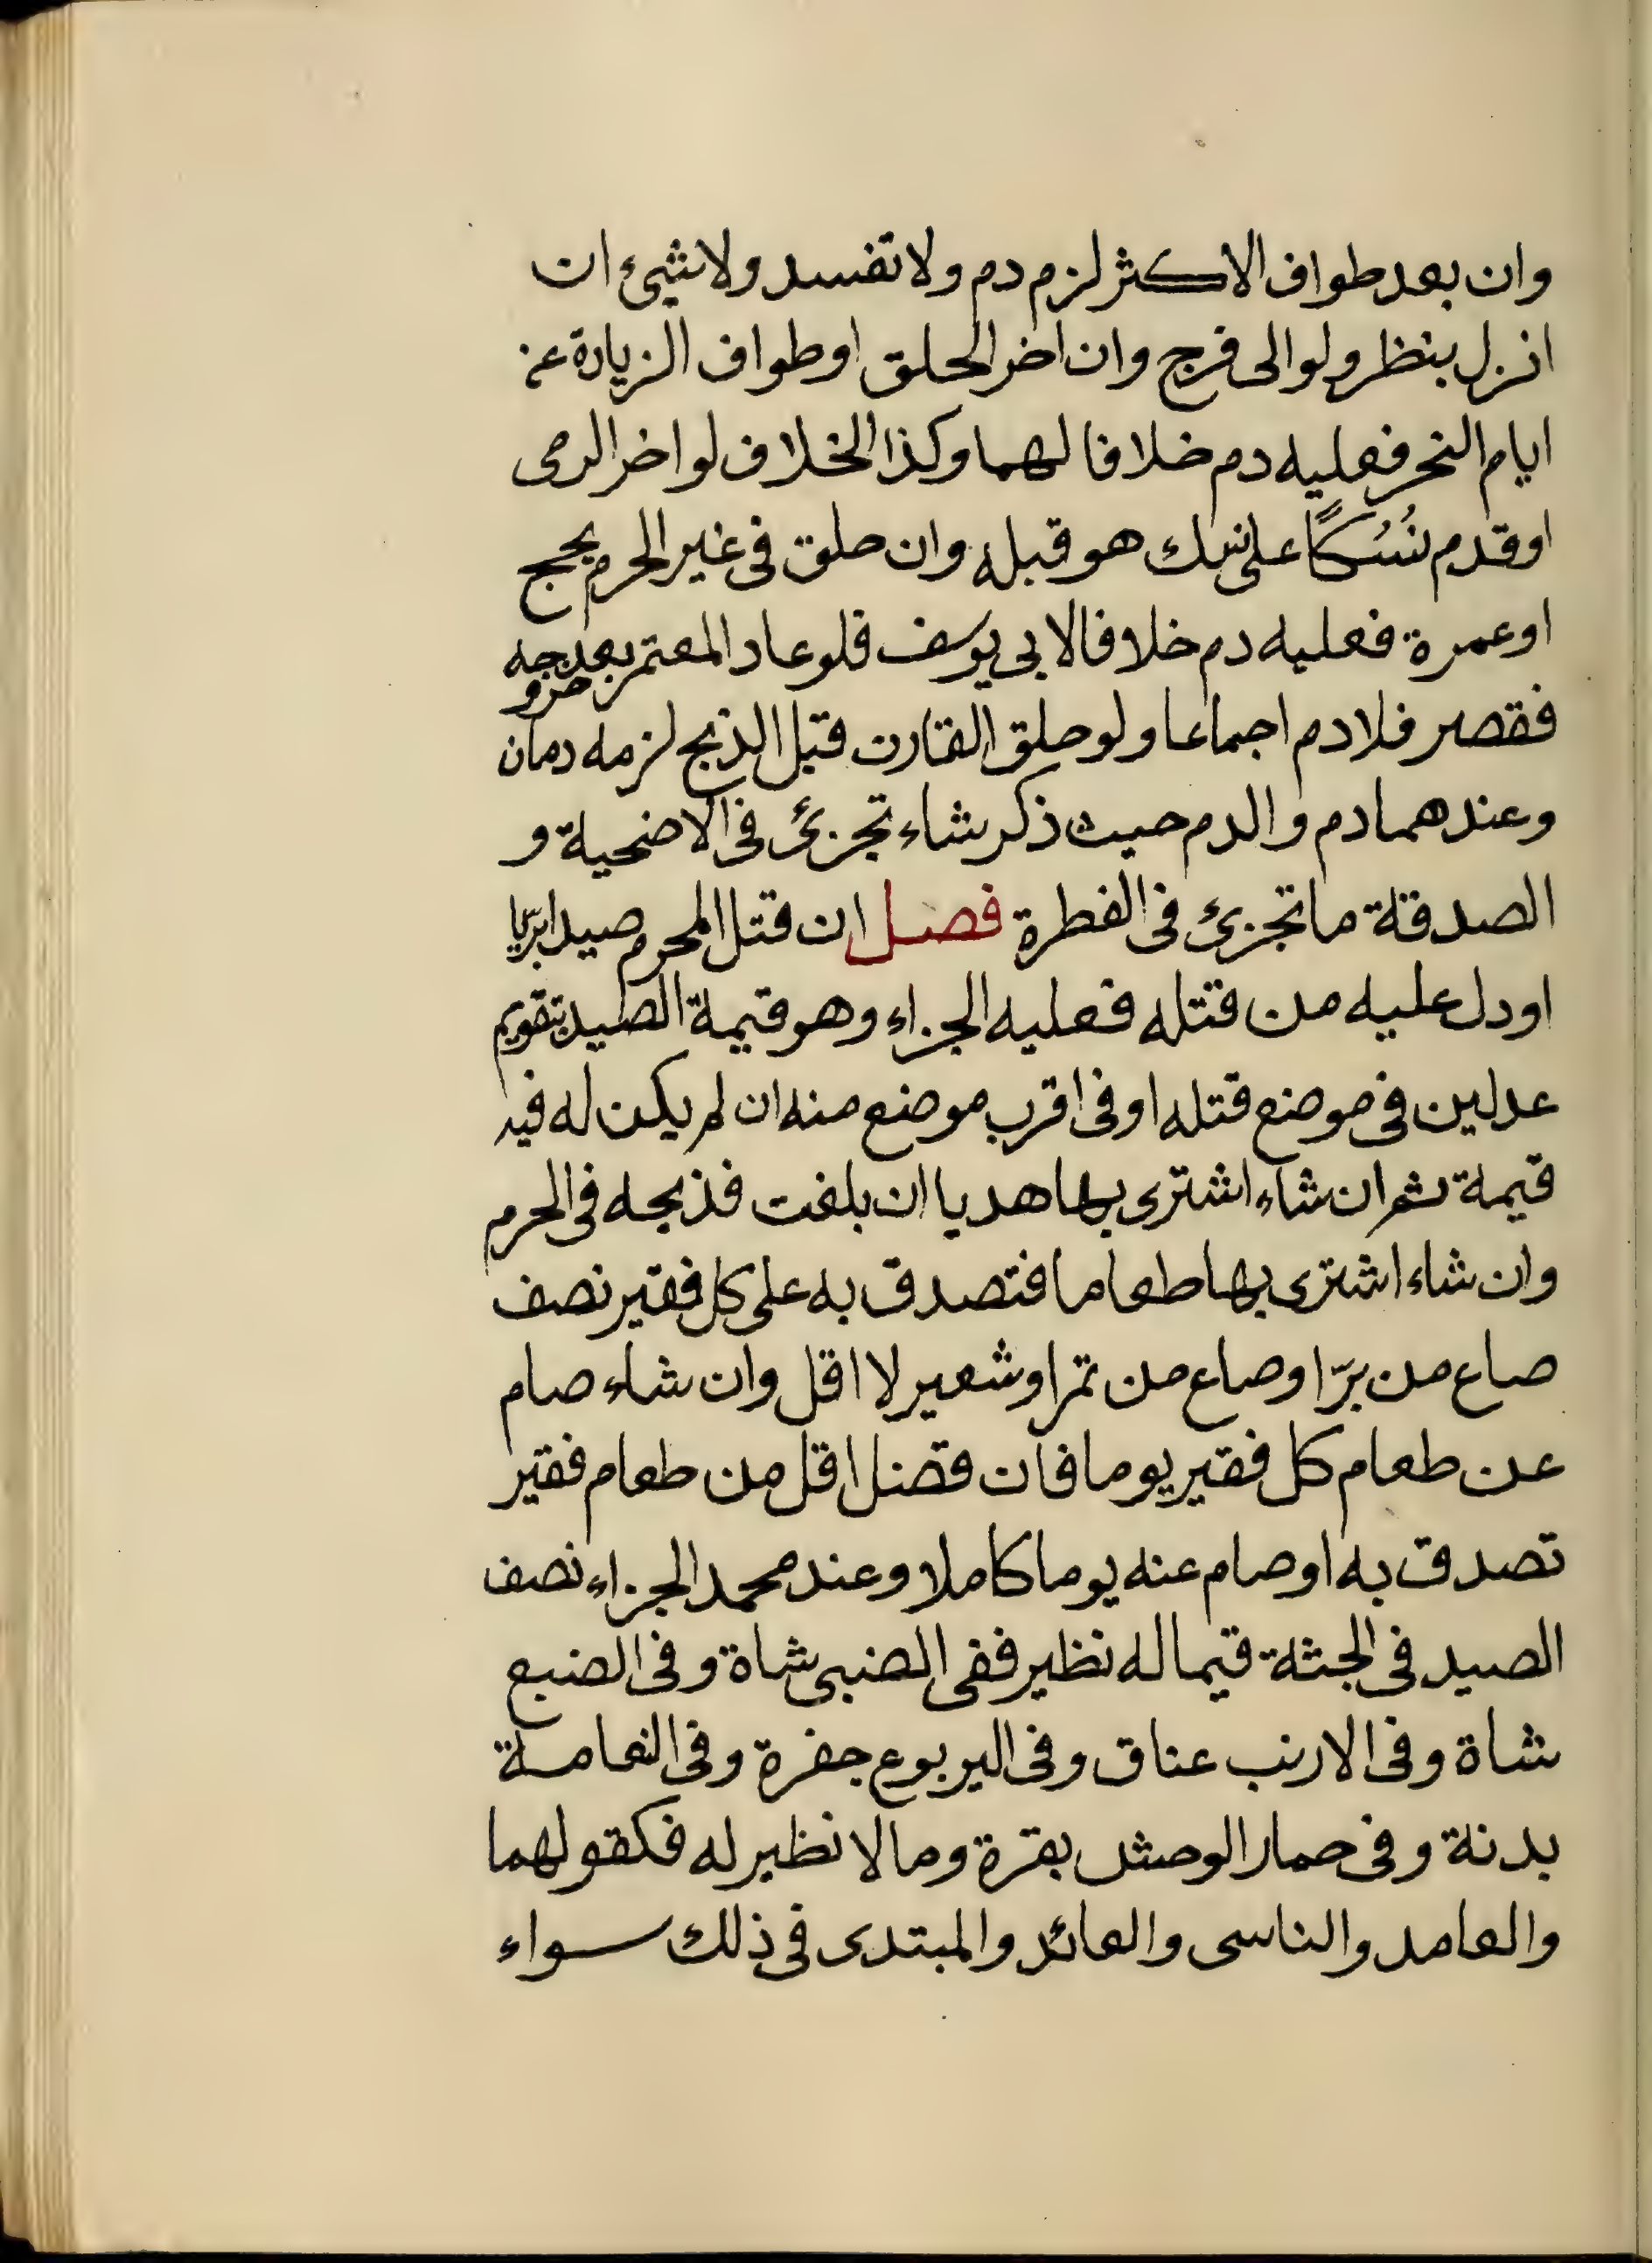 وان بعد طواف الاكثر لزم دم ولا تفسد ولا شيئ ان
انزل بنظر ولو الى فرج وان اخر الحلق او طواف الزيارة عن
ايام النحر فعليه دم خلافا لهما وكذا الخلاف لو اخر الرمى
او قدم نُسُكًا على نسك هو قبله وان حلق فى غير الحرم بحج
او عمرة فعليه دم خلافا لابى يوسف فلو عاد المعتمر بعد
فقصر فلا دم اجماعا ولو حلق القارن قبل الذبح لزمه دمان
وعندهما دم والدم حيث ذكر شاء تجزئ فى الاضحية و
الصدقة ما تجزئ فى الفطرة فصل ان قتل المحرم صيد ابرّيا
او دل عليه من قتله فعليه الجزاء وهو قيمة الصيد بتقويم
عدلين فى موضع قتله او فى اقرب موضع منه ان لم يكن له فيه
قيمة ثم ان شاء اشترى بها هديا ان بلغت فذبحه فى الحرم
وان شاء اشترى بها طعاما فتصدق به على كل فقير نصف
صاع من برّ او صاع من تمر او شعير لا اقل وان شاء صام
عن طعام كل فقير يوما فان فضل اقل من طعام فقير
تصدق به او صام عنه يوما كاملا وعند محمد الجزاء نصف
الصيد فى الجثة قيما له نظير ففى الضبى شاة وفى الضبع
شاة وفى الارنب عناق وفى اليربوع جفرة وفى النعامة
بدنة وفى حمار الوحش بقرة وما لا نظير له فكقولهما
والعامد والناسى والعائد والمبتدى فى ذلك سواء